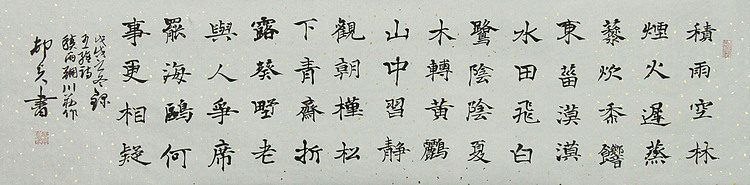 積雨空林
煙火遲蒸
藜炊黍饟
東菑漠漠
水田飛白
鷺陰陰夏
木轉黃鸝
山中習靜
觀朝槿松
下青齋折
露葵野老
與人爭席
罷海鷗何
事更相疑
戊戌之冬錄
王維詩
積雨輞川莊作
書